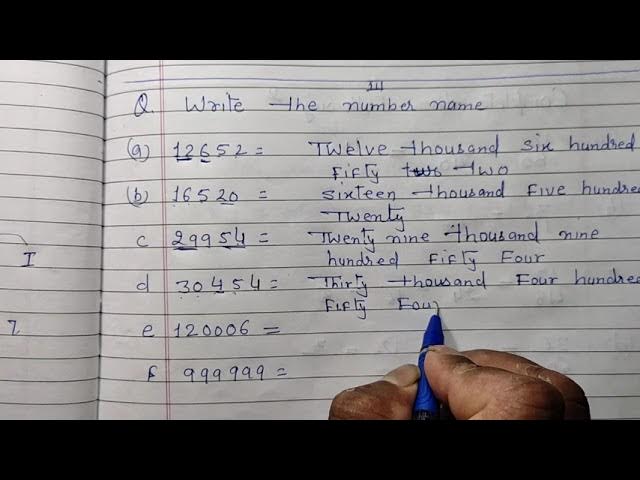 Q. Write the number name
(a) 12652 = Twelve thousand six hundred
Fifty two
(b) 16520 = sixteen thousand Five hundred
Twenty
c 29954 = Twenty nine thousand nine
hundred Fifty Four
d 30454 = Thirty thousand Four hundred
Fifty Four
I
e 120006 =
f 999999 =